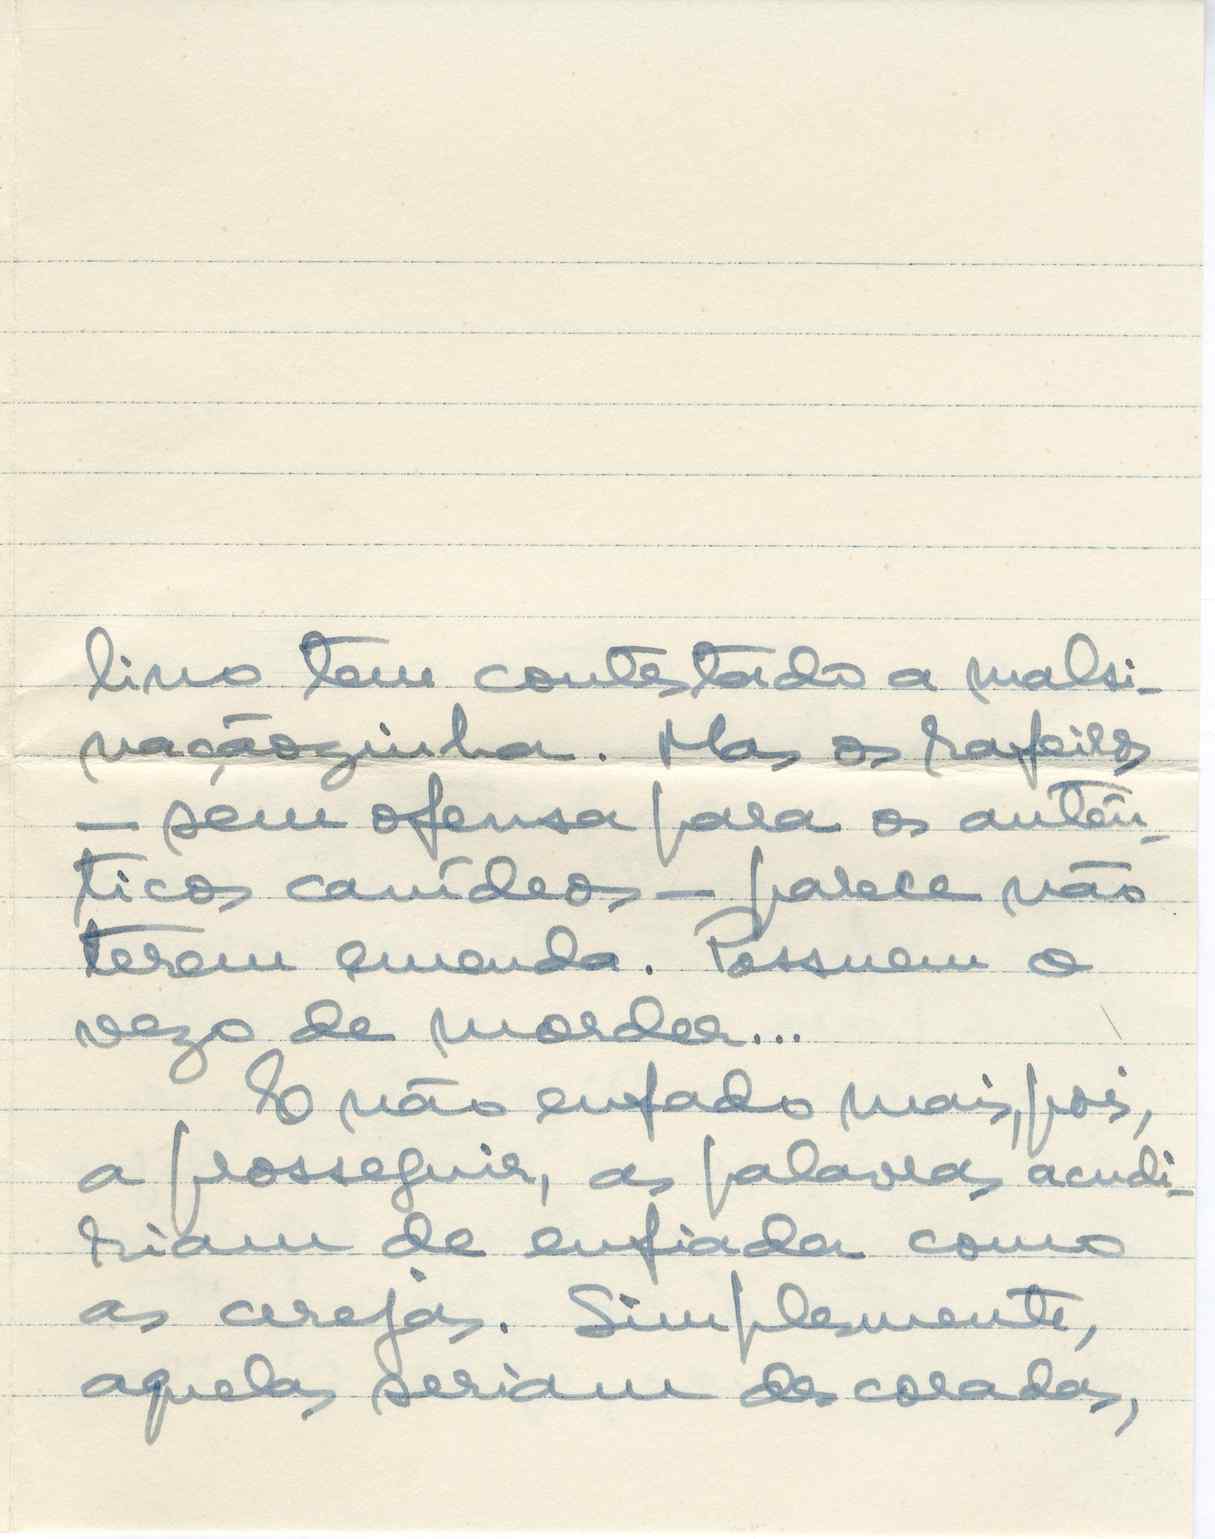 lino tem contestado a malsi-
naçãozinha. Mas os rafeiros
— sem ofensa para os autên-
ticos canídeos — parece não
terem emenda. Possuem o
vezo de morder...
E não enfado mais, pois,
a prosseguir, as palavras acudi-
riam de enfiada como
as cerejas. Simplesmente,
aquelas seriam descoradas,